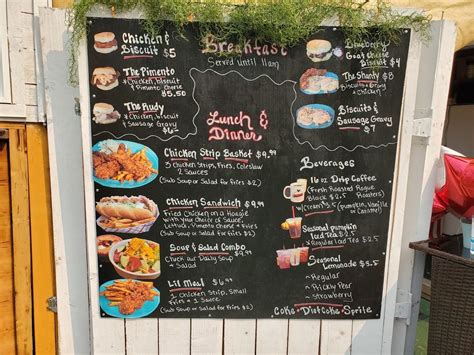 Breakfast
Served until 11am
Chicken &
Biscuit $5
The Pimento
*Chicken, biscuit
& Pimento Cheese
$5.50
The Rudy
*Chicken, Biscuit
& Sausage Gravy
Blueberry
Goat Cheese
Biscuit
$4
The Shanty $8
Biscuits &
Sausage Gravy
$7
Lunch &
Dinner
Chicken Strip Basket $9.99
3 Chicken Strips, Fries, Coleslaw
2 Sauces
(Sub Soup or Salad for Fries $2)
Chicken Sandwich $9.99
Fried Chicken on a Hoagie
with your Choice of Sauce,
Lettuce, Pimento Cheese + Fries
(Sub Soup or Salad for Fries $2)
Soup & Salad Combo
Check our Daily Soup
+ Salad
Lil Meal
1 Chicken Strip, Small
Fries + 1 Sauce
(Sub Soup or Salad for Fries $2)
Beverages
16 oz Drip Coffee
(Fresh Roasted Rogue
Black $2.5 Roasters)
Seasonal Pumpkin
Iced Tea $2.5
*Regular Iced Tea $2.5
Seasonal
Lemonade $3.5
- Regular
- Prickly Pear
- Strawberry
Coke - Diet Coke - Sprite